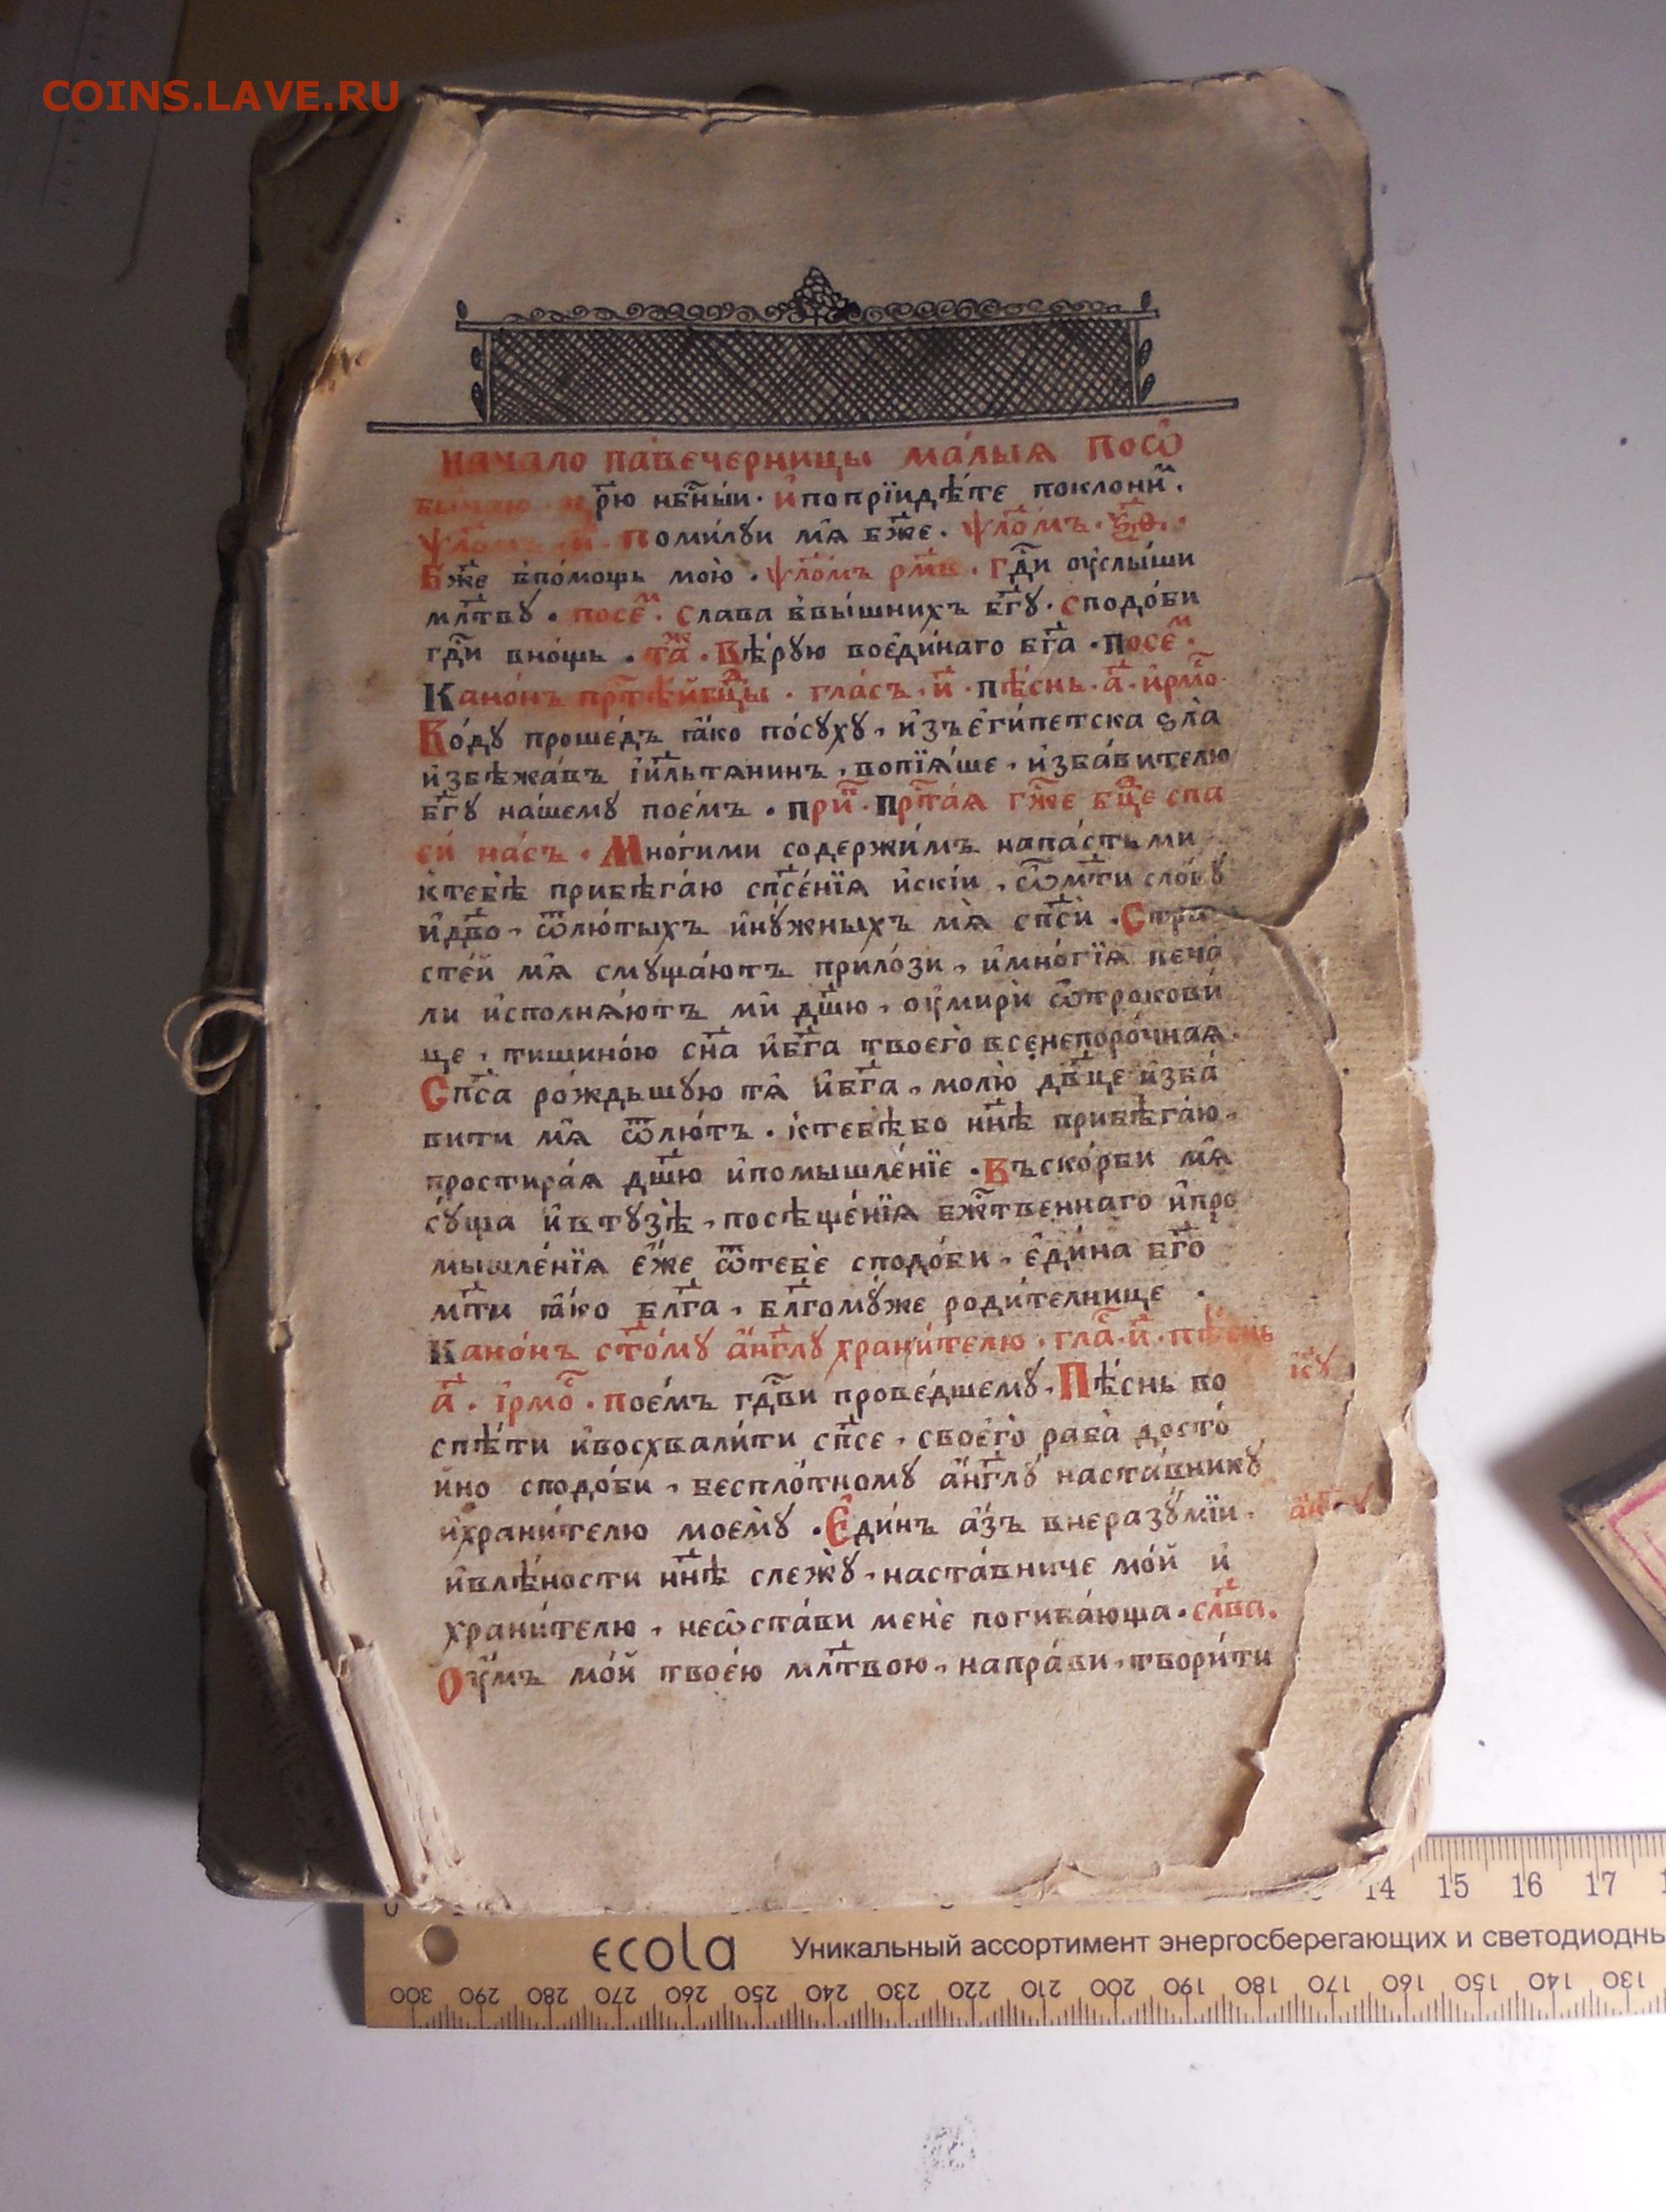 COINS.LAVE.RU
начало паве́черницы ма́лыѧ посѡ҆
рю нб҃ны́и · и҆ попрїидѣ́те поклони́м ·
поми́лꙋи мѧ̀ бж҃е · ѱл҃о́мъ ·
Бж҃е впо́мощь мою̀ · ѱл҃о́мъ рм҃в · гд҃и ᲂу҆слы́ши
мл҃твꙋ · посе́м · слава ввы́шнихъ бг҃ꙋ · сподо́би
гд҃и вно́щь · та́ж · вѣ́рꙋю воеди́наго бг҃а · посе́м ·
Кано́нъ прⷭ҇тѣ́й бцⷣы · гла́съ · и҃ · пѣ́снь · а҃ · и҆рмо́с
Во́дꙋ проше́дъ ꙗ҆́ко по́сꙋхꙋ , и҆зъ е҆ги́петска ѕла̀
и҆збѣжа́въ і҆и҃льтѧнинъ , вопїѧ́ше , и҆зба́вителю
бг҃ꙋ на́шемꙋ пое́мъ · при́п · прⷭ҇та́ѧ гж҃е бцⷣе спа
си́ на́съ · Мно́гими содержи́мъ напа́стьми
ктебѣ̀ прибѣга́ю сп҃се́нїѧ и҆скі́и , ѽ мт҃и сло́вꙋ
и҆ дв҃о , ѿ лю́тыхъ и҆ нꙋ́жныхъ мѧ̀ сп҃сѝ · Стра
сте́й мѧ̀ смꙋща́ютъ прило́зи , и҆ мно́гїѧ печа́
ли и҆сполнѧ́ютъ мѝ дш҃ю , ᲂу҆мирѝ ѽ проковѝ
це , тишино́ю сн҃а и҆ бг҃а твоего̀ всенепоро́чнаѧ ·
Сп҃са ро́ждьшꙋю тѧ̀ и҆ бг҃а , молю̀ дв҃це и҆зба́
вити мѧ̀ ѿ лю́тъ · ктебѣ̀ бо нн҃ѣ прибѣга́ю ,
простира́ѧ дш҃ю и҆ помышле́нїе · Въско́рби мѧ̀
сꙋ́ща и҆ втꙋзѣ̀ , посѣще́нїѧ бж҃твеннаго и҆ про
мышле́нїѧ е҆́же ѿ тебѐ сподо́би , е҆ди́на бг҃о
мт҃и ꙗ҆́ко бл҃га , бл҃гомꙋ́же роди́телнице ·
Кано́нъ ст҃о́мꙋ а҆́нг҃лꙋ храни́телю · гла́с · и҃ · пѣ́снь
а҃ · і҆рмо́с · пое́мъ гд҃ви прове́дшемꙋ · Пѣ́снь во
і҆с҃ꙋ
спѣ́ти и҆ восхвали́ти сп҃се , своего̀ раба̀ досто́
йно сподо́би , беспло́тномꙋ а҆́нг҃лꙋ наста́вникꙋ
и҆ храни́телю моемꙋ̀ · Е҆ди́нъ а҆́зъ внеразꙋ́мїи ·
и҆ влѣ́ности нн҃ѣ слежꙋ̀ , наста́вниче мо́й и҆
храни́телю , неѡ҆ста́ви менѐ погиба́юща · сл҃ва ·
Оу҆́мъ мо́й твое́ю мл҃твою , напра́ви , твори́ти
14 15 16 17
ecola Уникальный ассортимент энергосберегающих и светодиодны
300 290 280 270 260 250 240 230 220 210 200 190 180 170 160 150 140 130